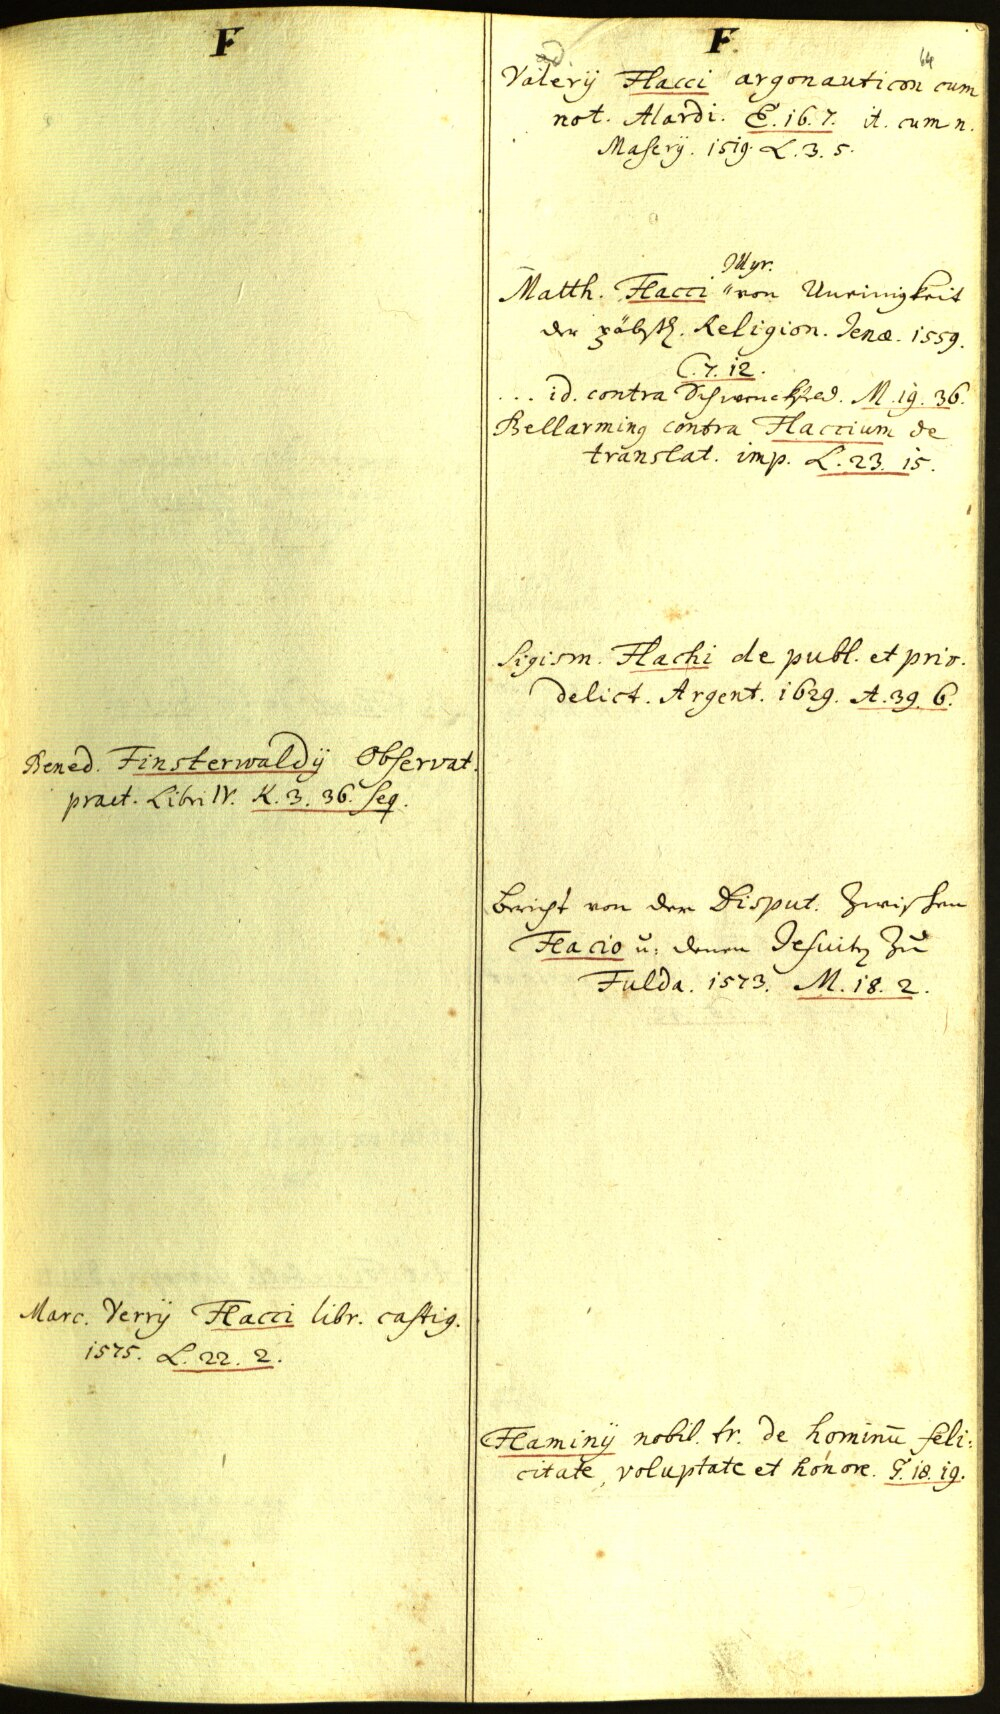 F
Bened. Finsterwaldÿ Observat.
pract. Libri IV. K. 3. 36. seq.
Marc. Verrÿ Flacci libr. castig.
1575. L. 22. 2.
F.
64
Valerÿ Flacci argonauticon cum
not. Alardi. E. 16. 7. it. cum n.
Maserÿ. 1519. L. 3. 5.
Illyr.
Matth. Flacci von Uneinigkeit
der päbstl. Religion. Jenæ. 1559.
C. 7. 12.
... id. contra Schwenckfed. M. 19. 36.
Bellarming contra Flaccium de
translat. imp. L. 23. 15.
Sigism. Flachi de publ. et priv.
delict. Argent. 1629. A. 39. 6.
Bericht von der Disput. zwischen
Flacio u. denen Jesuit zu
Fulda. 1573. M. 18. 2.
Flaminÿ nobil. tr. de hominū feli:
citate, voluptate et honore. G. 18. 19.